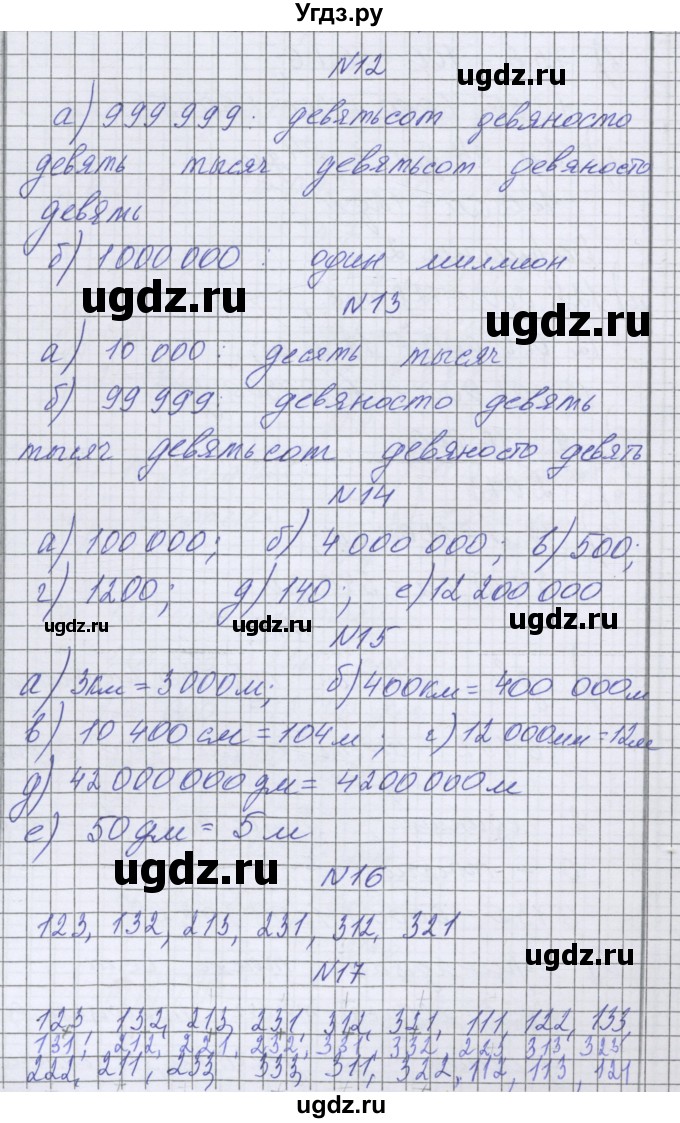 Угдз.ру
№12
ugdz.ru
а) 999 999: девятьсот девяносто
девять тысяч девятьсот девяносто
девять
б) 1000 000: один миллион
ugdz.ru
№13
ugdz.ru
а) 10 000: десять тысяч
б) 99 999: девяносто девять
тысяч девятьсот девяносто девять
№14
а) 100 000; б) 4 000 000; в) 500;
г) 1200; д) 140; е) 12 200 000
ugdz.ru ugdz.ru ugdz.ru
№15
а) 3км = 3 000м; б) 400км = 400 000м
в) 10 400 см = 104м; г) 12 000мм = 12м
д) 42 000 000 дм = 4200 000м
е) 50 дм = 5м
ugdz.ru
№16
123, 132, 213, 231, 312, 321
ugdz.ru
№17
123, 132, 213, 231, 312, 321, 111, 122, 133,
131, 212, 221, 232, 331, 332, 223, 313, 323
222, 211, 233, 333, 311, 322, 112, 113, 121
ugdz.ru